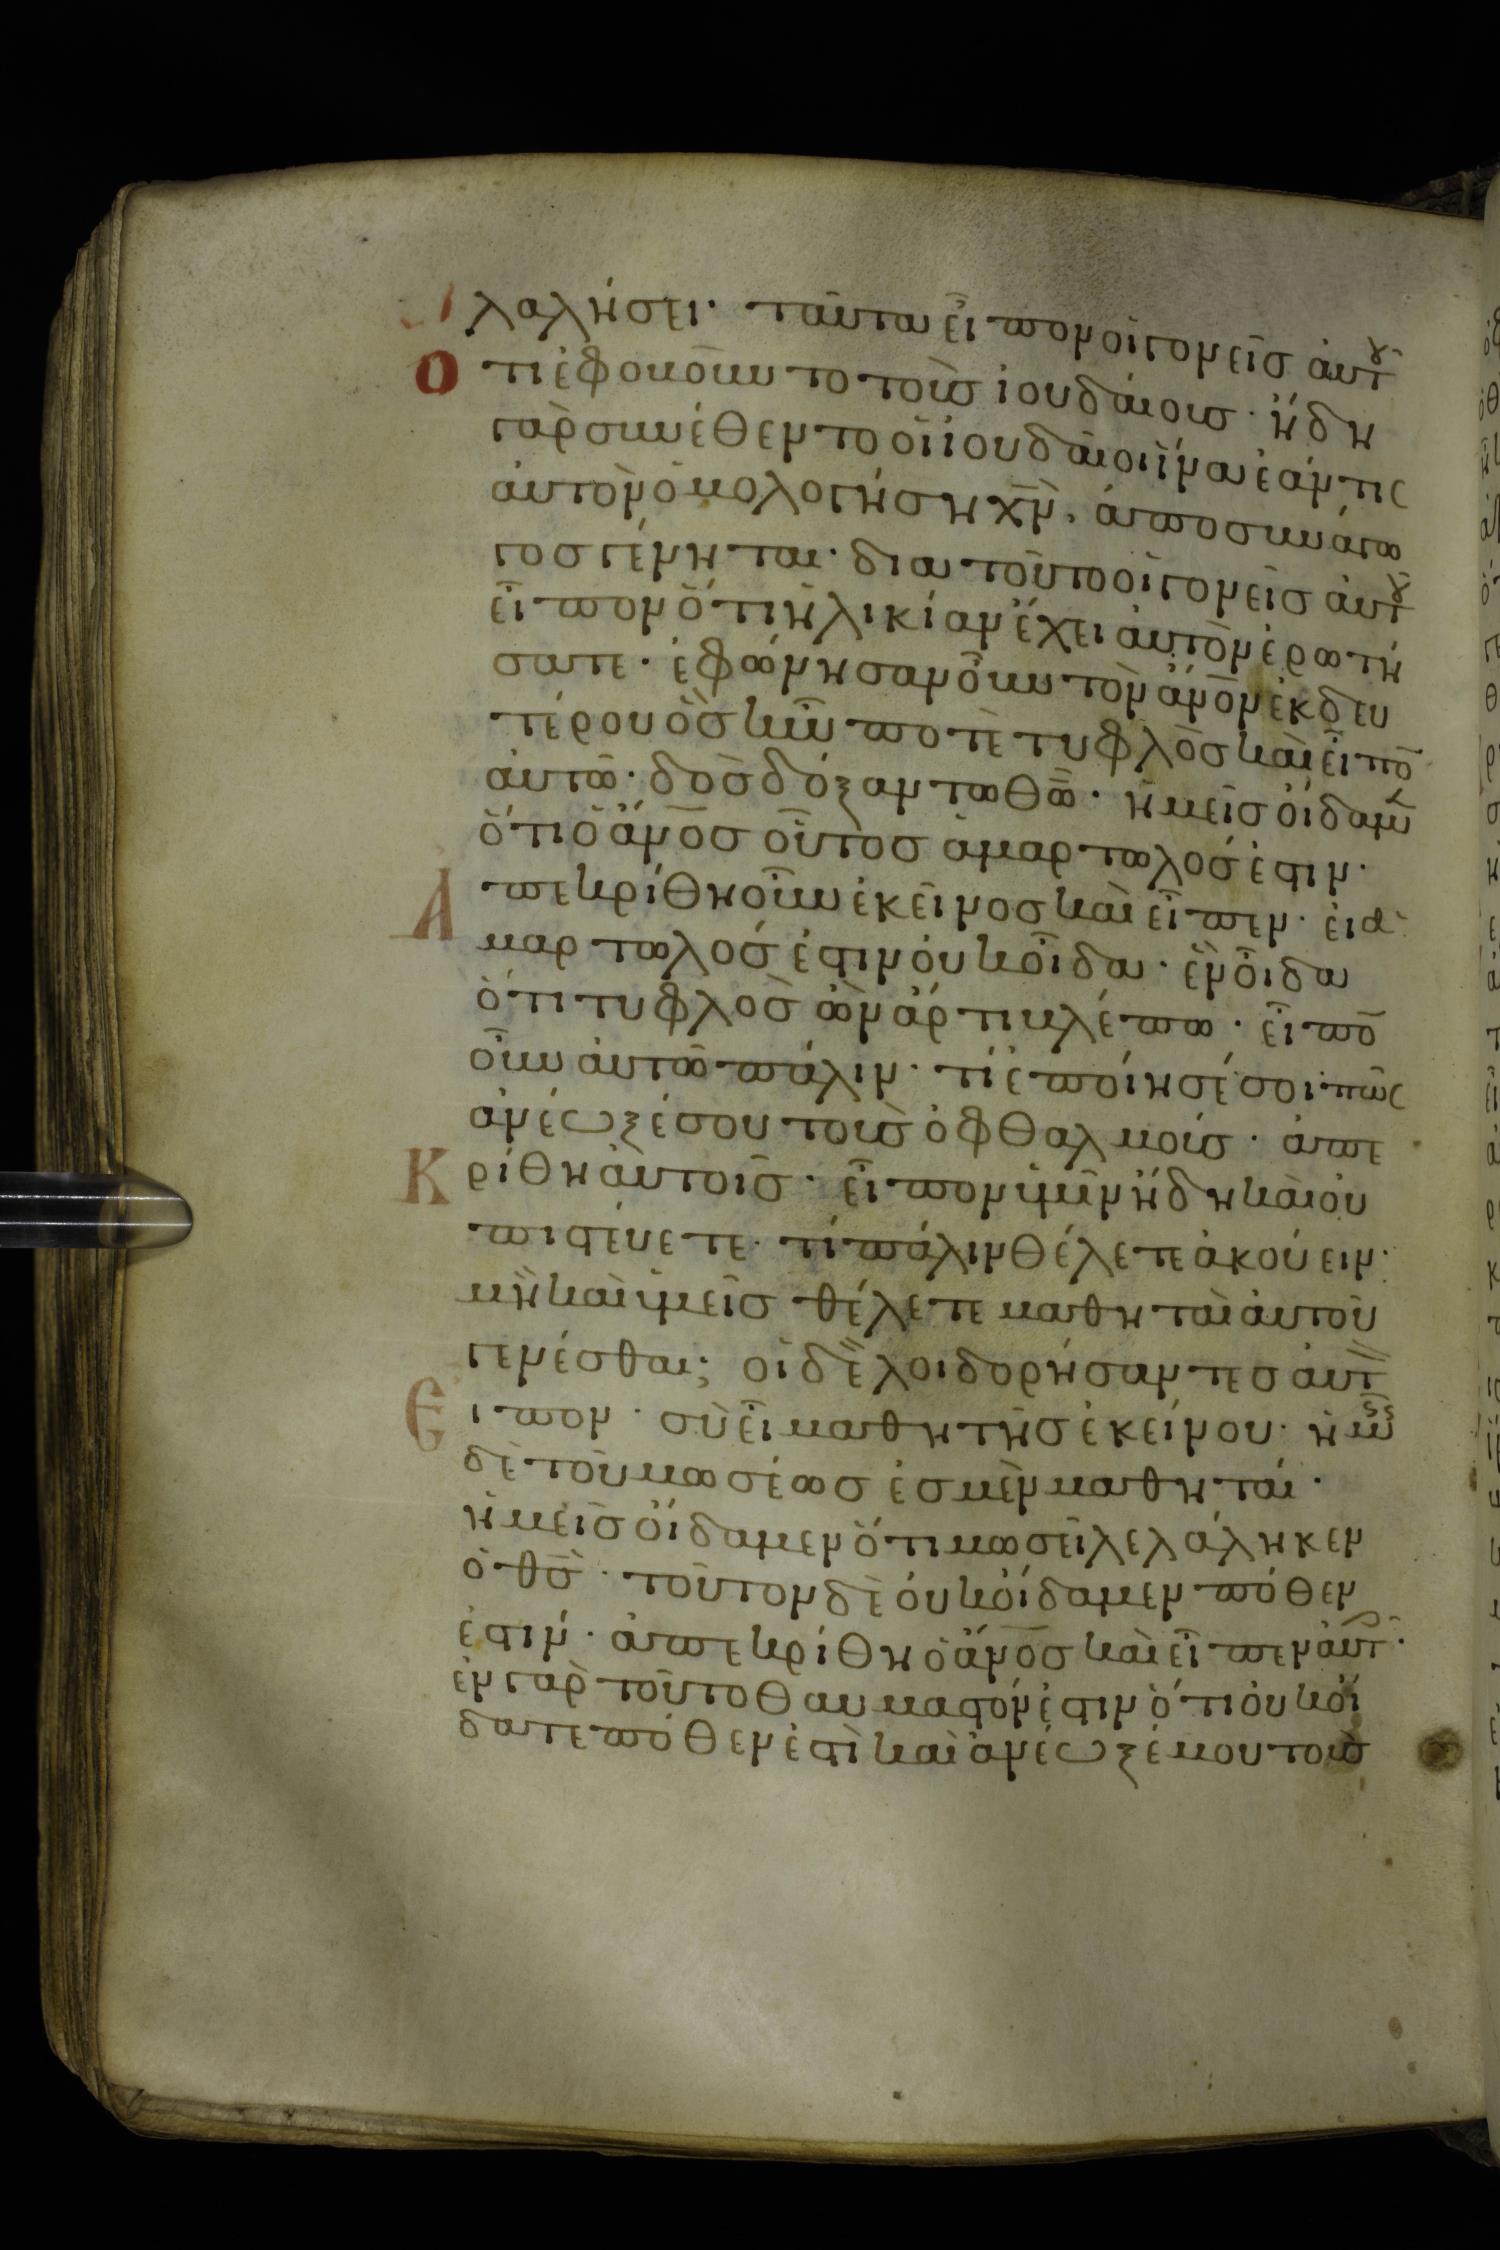 λαλήσει· ταῦτα εἶπον οἱ γονεῖς αὐτ(ου)
Ὅτι ἐφοβοῦντο τοὺς ἰουδαίους· ἤδη
γὰρ συνέθεντο οἱ ἰουδαῖοι ἵνα ἐάν τις
αὐτὸν ὁμολογήσῃ χν̅, ἀποσυνάγω
γος γένηται· δια τοῦτο οἱ γονεῖς αὐτ(ου)
εἶπον ὅτι ἡλικίαν ἔχει αὐτὸν ἐρωτή
σατε· ἐφώνησαν οὖν τὸν ἄν̅ο̅ν ἐκ δευ
τέρου ὃς ἦν ποτὲ τυφλὸς καὶ εἶπο̅
αὐτῶ· δὸς δόξαν τω θ̅ω̅· ἡμεῖς οἴδαμ(εν)
ὅτι ὁ ἄν̅ο̅ς οὗτος ἁμαρτωλός ἐστιν·
Ἀπεκρίθη οὖν ἐκεῖνος καὶ εἶπεν· εἰ ἁ
μαρτωλός ἐστιν οὐκ οἶδα· ἓν οἶδα
ὅτι τυφλὸς ὢν ἄρτι βλέπω· εἶπο̅
οὖν αὐτῶ πάλιν· τί ἐποίησέ σοι· πῶς
ἀνέωξέ σου τοὺς ὀφθαλμούς· ἀπε
Κρίθη αὐτοῖς· εἶπον ὑμῖν ἤδη καὶ οὐ
πιστεύετε· τί πάλιν θέλετε ἀκούειν·
μὴ καὶ ὑμεῖς θέλετε μαθηταὶ αὐτοῦ
γενέσθαι; οἱ δὲ ἐλοιδορήσαντες αὐτ
Ειπον· σὺ εἶ μαθητὴς ἐκείνου· ἡμ(εις)
δὲ τοῦ μωσέως ἐσμὲν μαθηταί·
ἡμεῖς οἴδαμεν ὅτι μωσεῖ λελάληκεν
ὁ θ̅ς̅· τοῦτον δὲ οὐκ οἴδαμεν πόθεν
ἐστίν· ἀπεκρίθη ὁ ἄν̅ο̅ς καὶ εἶπεν αὐτ(οις)·
ἐν γὰρ τοῦτο θαυμαστόν ἐστιν ὅτι οὐκ οἴ
δατε πόθεν ἐστὶ καὶ ἀνέωξέ μου τοὺς